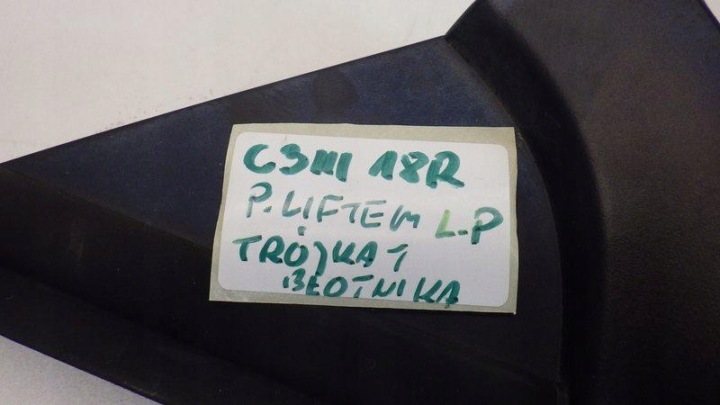 C3III 18R
P. LIFTEM L.P
TRÓJKAT
BŁOTNIKA